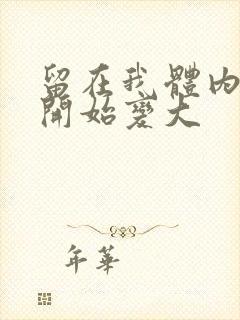 留在我體內
開始變大
年華